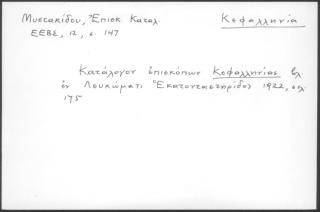 Μυστακίδου, Ἐπισκ. Καταλ. Κεφαλληνία
ΕΕΒΣ, 12, σ. 147
Κατάλογον ἐπισκόπων Κεφαλληνίας βλ
ἐν Λευκώματι Ἑκατονταετηρίδος 1922, σελ
175